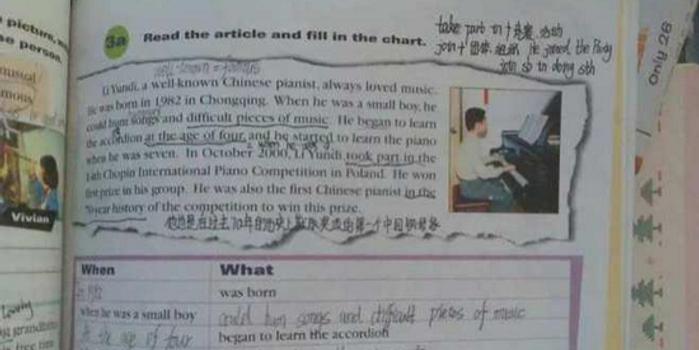 picture,
e person.
musical
mous
Vivian
3a Read the article and fill in the chart.
take part in + 竞赛, 活动
join + 团体, 组织 He joined the Party
join sb in doing sth
Only 26
well-known = famous
Li Yundi, a well-known Chinese pianist, always loved music.
He was born in 1982 in Chongqing. When he was a small boy, he
could hum songs and difficult pieces of music. He began to learn
the accordion at the age of four, and he started to learn the piano
when he was seven. In October 2000, Li Yundi took part in the
14th Chopin International Piano Competition in Poland. He won
first prize in his group. He was also the first Chinese pianist in the
70-year history of the competition to win this prize.
他也是在过去70年的历史上
第一个中国钢琴家
When What
was born
when he was a small boy could hum songs and difficult pieces of music
at the age of four began to learn the accordion